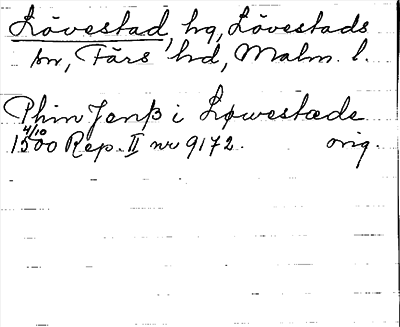 Lövestad, hg, Lövestads
sn, Färs hd, Malm. l.
Phin Jenß i Løwestæde
4/10
1500 Rep. II nr 9172. orig.